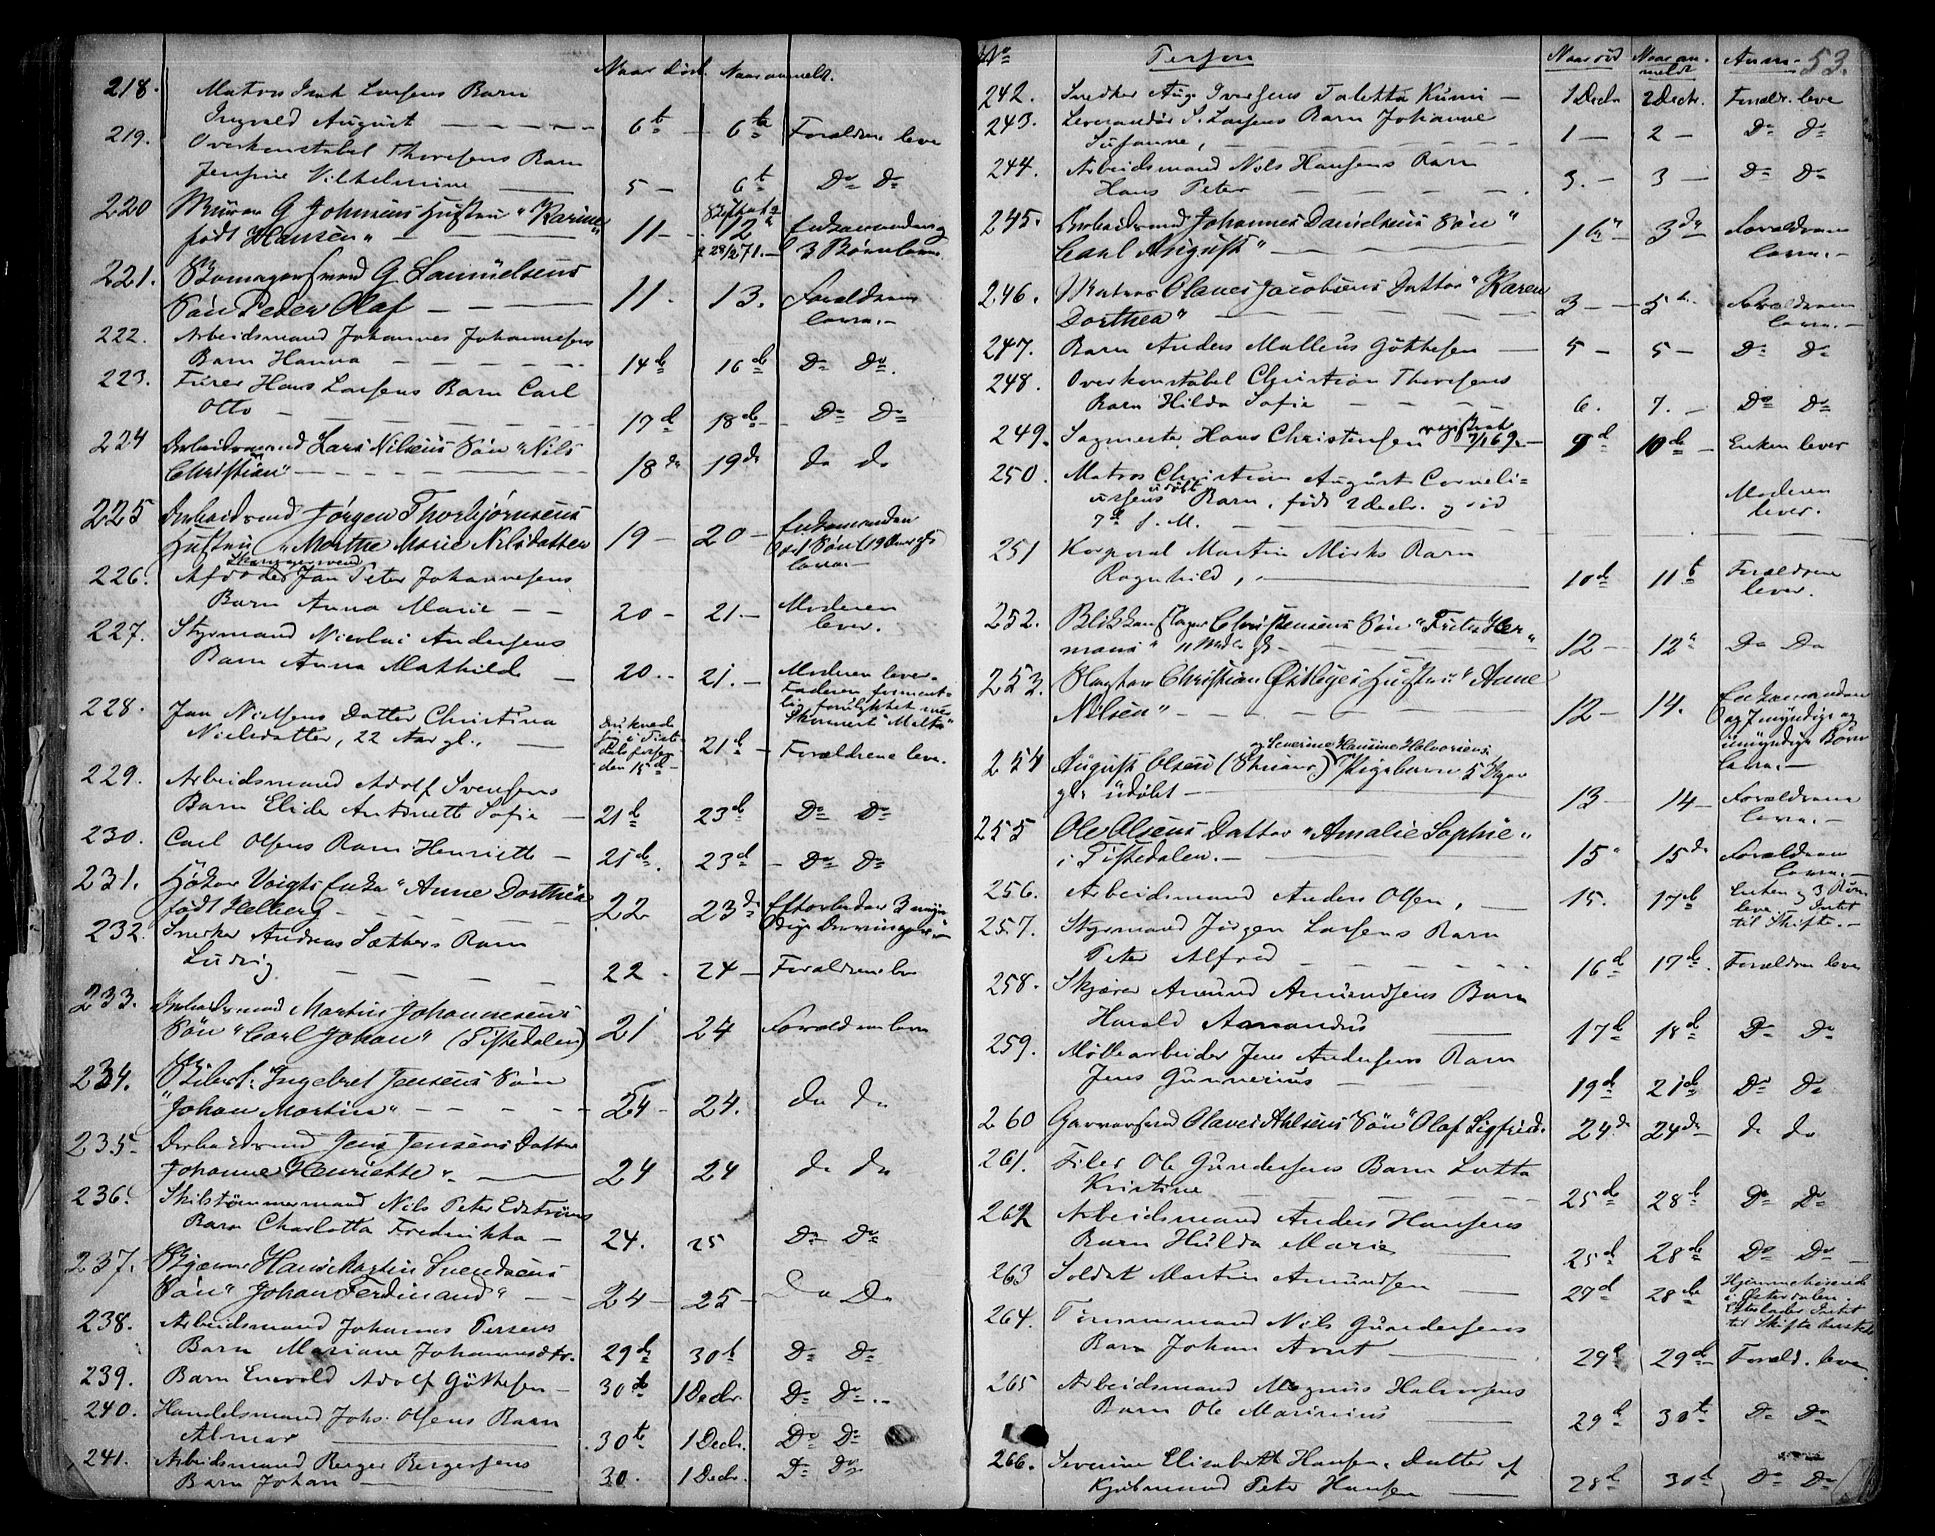 Naar död. Naar anmeldt.
218. Matros Isak Larsens Barn
Ingvald August — 6te — 6te Forældrene leve
219. Overkonstabel Thoresens Barn
Jensine Vilhelmine — 5 — 6t Do Do
220 Murer G Johnsens Hustru "Karine
født Hansen" — 11 — 12 Enkemanden og
3 Børn leve
28/2 71.
221. G Samuelsens
Søn Peder Olaf — 11. 13. Forældrene
leve. —
222. Arbeidsmand Johannes Johannesens
Barn Hanna — 14de 16de Do Do.
223. Hans Larsens Barn Carl
Otto — 17d 18de — Do Do
224 Arbeidsmand Lars Nilsens Søn "Nils
Christian" — 18de 19de do do
225 Arbeidsmd Jørgen Thorbjørnsens
Hustru "Marthe Marie Nilsdatter 19 — 20 — Enkemanden
og 1 Søn (19 Aar gl)
leve. —
226. Afdøde Jan Peter Johannesens
Barn Anna Marie — 20 — 21. — Moderen
lever.
227. Styrmand Nicolai Andersens
Barn Anna Mathilde — 20. — 21. — Moderen lever.
Faderen forment-
lig forulykket med
Skonnert "Malta"
228. Jan Nielsens Datter Christina
Nielsdatter, 22 Aar gl., — Druknede
sig i Tiste-
dalsfossen
den 15de — 21de — Forældrene leve.
229. Arbeidsmand Adolf Svensens
Barn Elide Antonette Sofie — 21de 23de Do Do
230. Carl Olsens Barn Henriette — 21de. 23d — Do Do
231. Høker Voigts Enke "Anne Dorthea
født Helberg — 22 23de Efterlader 3 myn-
dige Arvinger. —
232. Snekker Andreas Sæthers Barn
Ludvig — 22. 24 — Forældrene leve
233. Arbeidsmand Martin Johannesens
Søn "Carl Johan" (Tistedalen) 21 24 Forældrene leve
234. Ingebret Jensens Søn
"Johan Martin" — 24 — 24. do do
235. Arbeidsmand Jens Jensens Datter
Johanne Henriette". — 24 24 do do
236. Skibstømmermand Nils Peter Edstrøms
Barn Charlotta Fredrikka — 24. 25 Do Do
237. Skjærer Hans Martin Svendsens
Søn "Johan Ferdinand" — 24 — 25 — Do Do
238. Arbeidsmand Johannes Persens
Barn Mariane Johannesdtr. 29de 30t Do Do
239. Barn Enevold Adolf Gøthesen — 30te 1 Decbr. Do Do —
240. Handelsmand Johs. Olsens Barn
Almar — 30te 1 Decbr. Do Do
241. Arbeidsmand Berger Bergersens
Barn Johan — 30. 1 Decbr. Do Do
No Person Naar död Naar an-
meldt Anm. 53.
242. Snedker Aug. Iversens Taletta Kumi — 1 Decbr 2 Decbr. Foræld. leve
243. Leverandør S. Larsens Barn Johanne
Susanne, — 1 — 2 — Do Do
244. Arbeidsmand Nils Hansens Barn
Hans Peter — 3. — 3 — Do Do
245. Arbeidsmd Johannes Danielsens Søn "
Carl August" — 1ste 3de Forældrene
leve. —
246. Matros Olaves Jacobsens Datter "Karen
Dorthea" — 3 — 5te. Forældrene
leve. —
247. Barn Anders Malleus Gøthesen — 5 — 5 — Do Do
248. Overkonstabel Christian Thoresens
Barn Hilda Sofie — 6. 7. — Do Do
249. Sagmester Hans Christensen registreret
7/1 69. — 9d 10de — Enken lever
250. Matros Christian August Corneli-
ussens udøbt Barn, født 2 Decbr. og död
7de s. M. — Moderen
lever.
251 Korporal Martin Mirks Barn
Ragnhild, — 10de 11t Forældrene
lever.
252. Blikkenslager Christensens Søn "Frits Her-
mann" 11 gl. — 12 — 12te Do Do
253. Slagter Christian Østbyes Hustru "Anne
Nilsen" — 12 — 14. Enkemanden
og 7 myndige og
umyndige Børn
leve. —
254 August Olsens (Skriver) og Severine Hansine Halvorsens
Pigebarn 5 Dage
gl. udøbt — 13 — 14 — Forældrene
leve. —
255 Ole Olsens Datter "Amalie Sophie"
i Tistedalen. — 15 15de Forældrene
leve. —
256. Arbeidsmand Anders Olsen, — 15. 17de Enken og 3 Børn
leve. — Intet
til Skifte. —
257. Styrmand Jørgen Larsens Barn
Peter Alfred — 16de 17de. Forældrene leve
258. Skjærer Amund Amundsens Barn
Harald Amandus — 17de 18de Do Do
259. Møllearbeider Jens Andersens Barn
Jens Gunnerius — 19de 21de Do Do
260 Garversvend Olaves Ahlsens Søn "Olaf Sigfried. 24.de 24de — do do
261. Filer Ole Gundersens Barn Lotta
Kristine — 25de 28de Do Do
262 Arbeidsmand Anders Hansens
Barn Hulda Marie — 25d 28de Do Do —
263 Soldat Martin Amundsen — 27d 28de Hjemmehørende
i Østerdalen.
Efterlader Intet
til Skifte
264. Tømmermand Nils Gundersens
Barn Johan Arnt — 29d 29de — Foræld. leve
265 Arbeidsmand Magnus Halvorsens
Barn Ole Marinius — 29d 30te Do Do
266. Severine Elisabeth Hansen, Datter af
Kjøbmand Peter Hansen — 28de 30te Do Do